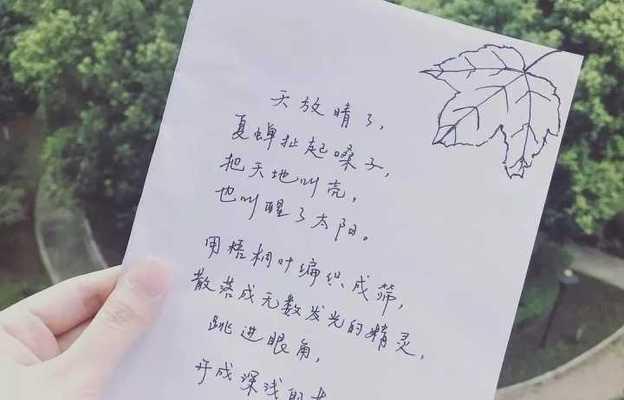 天放晴了，
夏蝉扯起嗓子，
把天地叫亮，
也叫醒了太阳。
用梧桐叶编织成筛，
散落成无数发光的精灵，
跳进眼角，
成深浅的